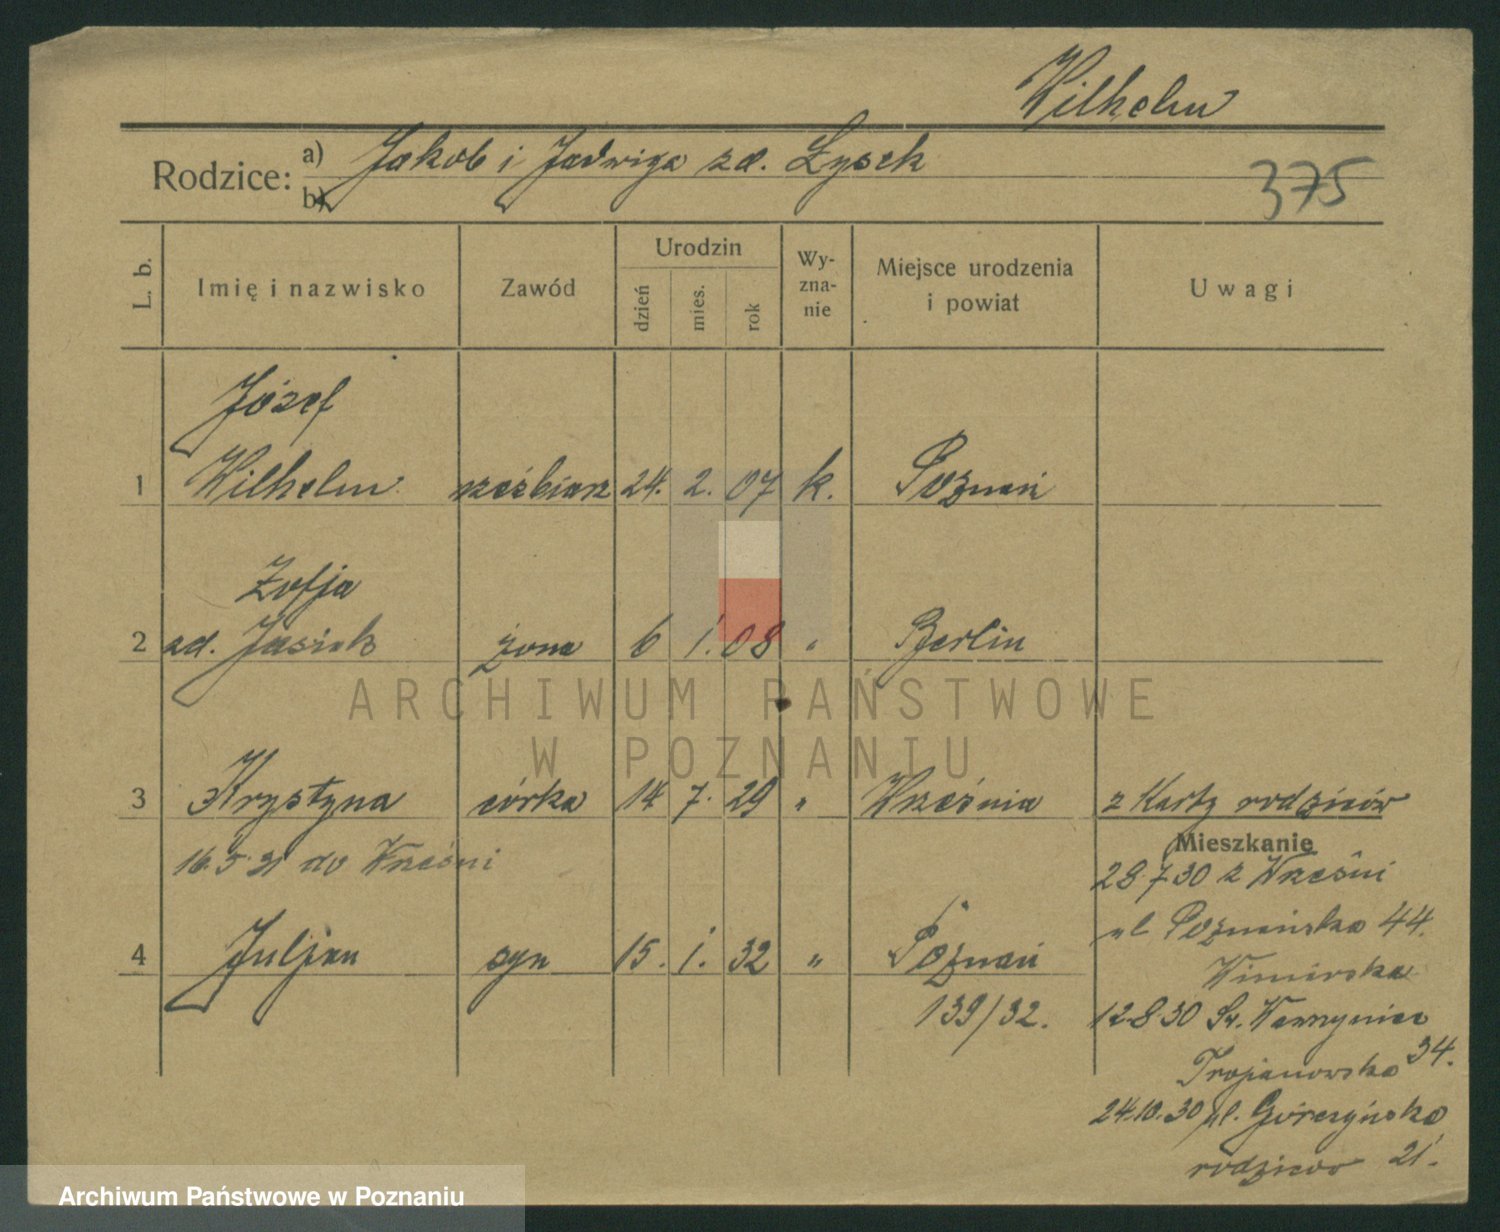 Wilhelm
Rodzice: a) Jakob i Jadwiga zd. Łysek
b)
375
L. b.
Imię i nazwisko
Zawód
Urodzin
dzień
mies.
rok
Wy-
zna-
nie
Miejsce urodzenia
i powiat
Uwagi
Józef
1 Wilhelm rzeźbiarz 24. 2. 07 k. Poznań
Zofja
2 zd. Jasiak żona 6 1. 08 " Berlin
ARCHIWUM PAŃSTWOWE
W POZNANIU
3 Krystyna córka 14 7. 29 " Września z Karty rodziców
Mieszkanie
16.5.31 do Wrześni
28.7.30 z Wrześni
ul Poznańska 44.
4 Juljan syn 15. 1. 32 " Poznań
139/32.
12.8.30 Św. Wawrzyniec 34.
Trojanowska
24.10.30 ul. Górczyńska
rodziców 21.
Archiwum Państwowe w Poznaniu